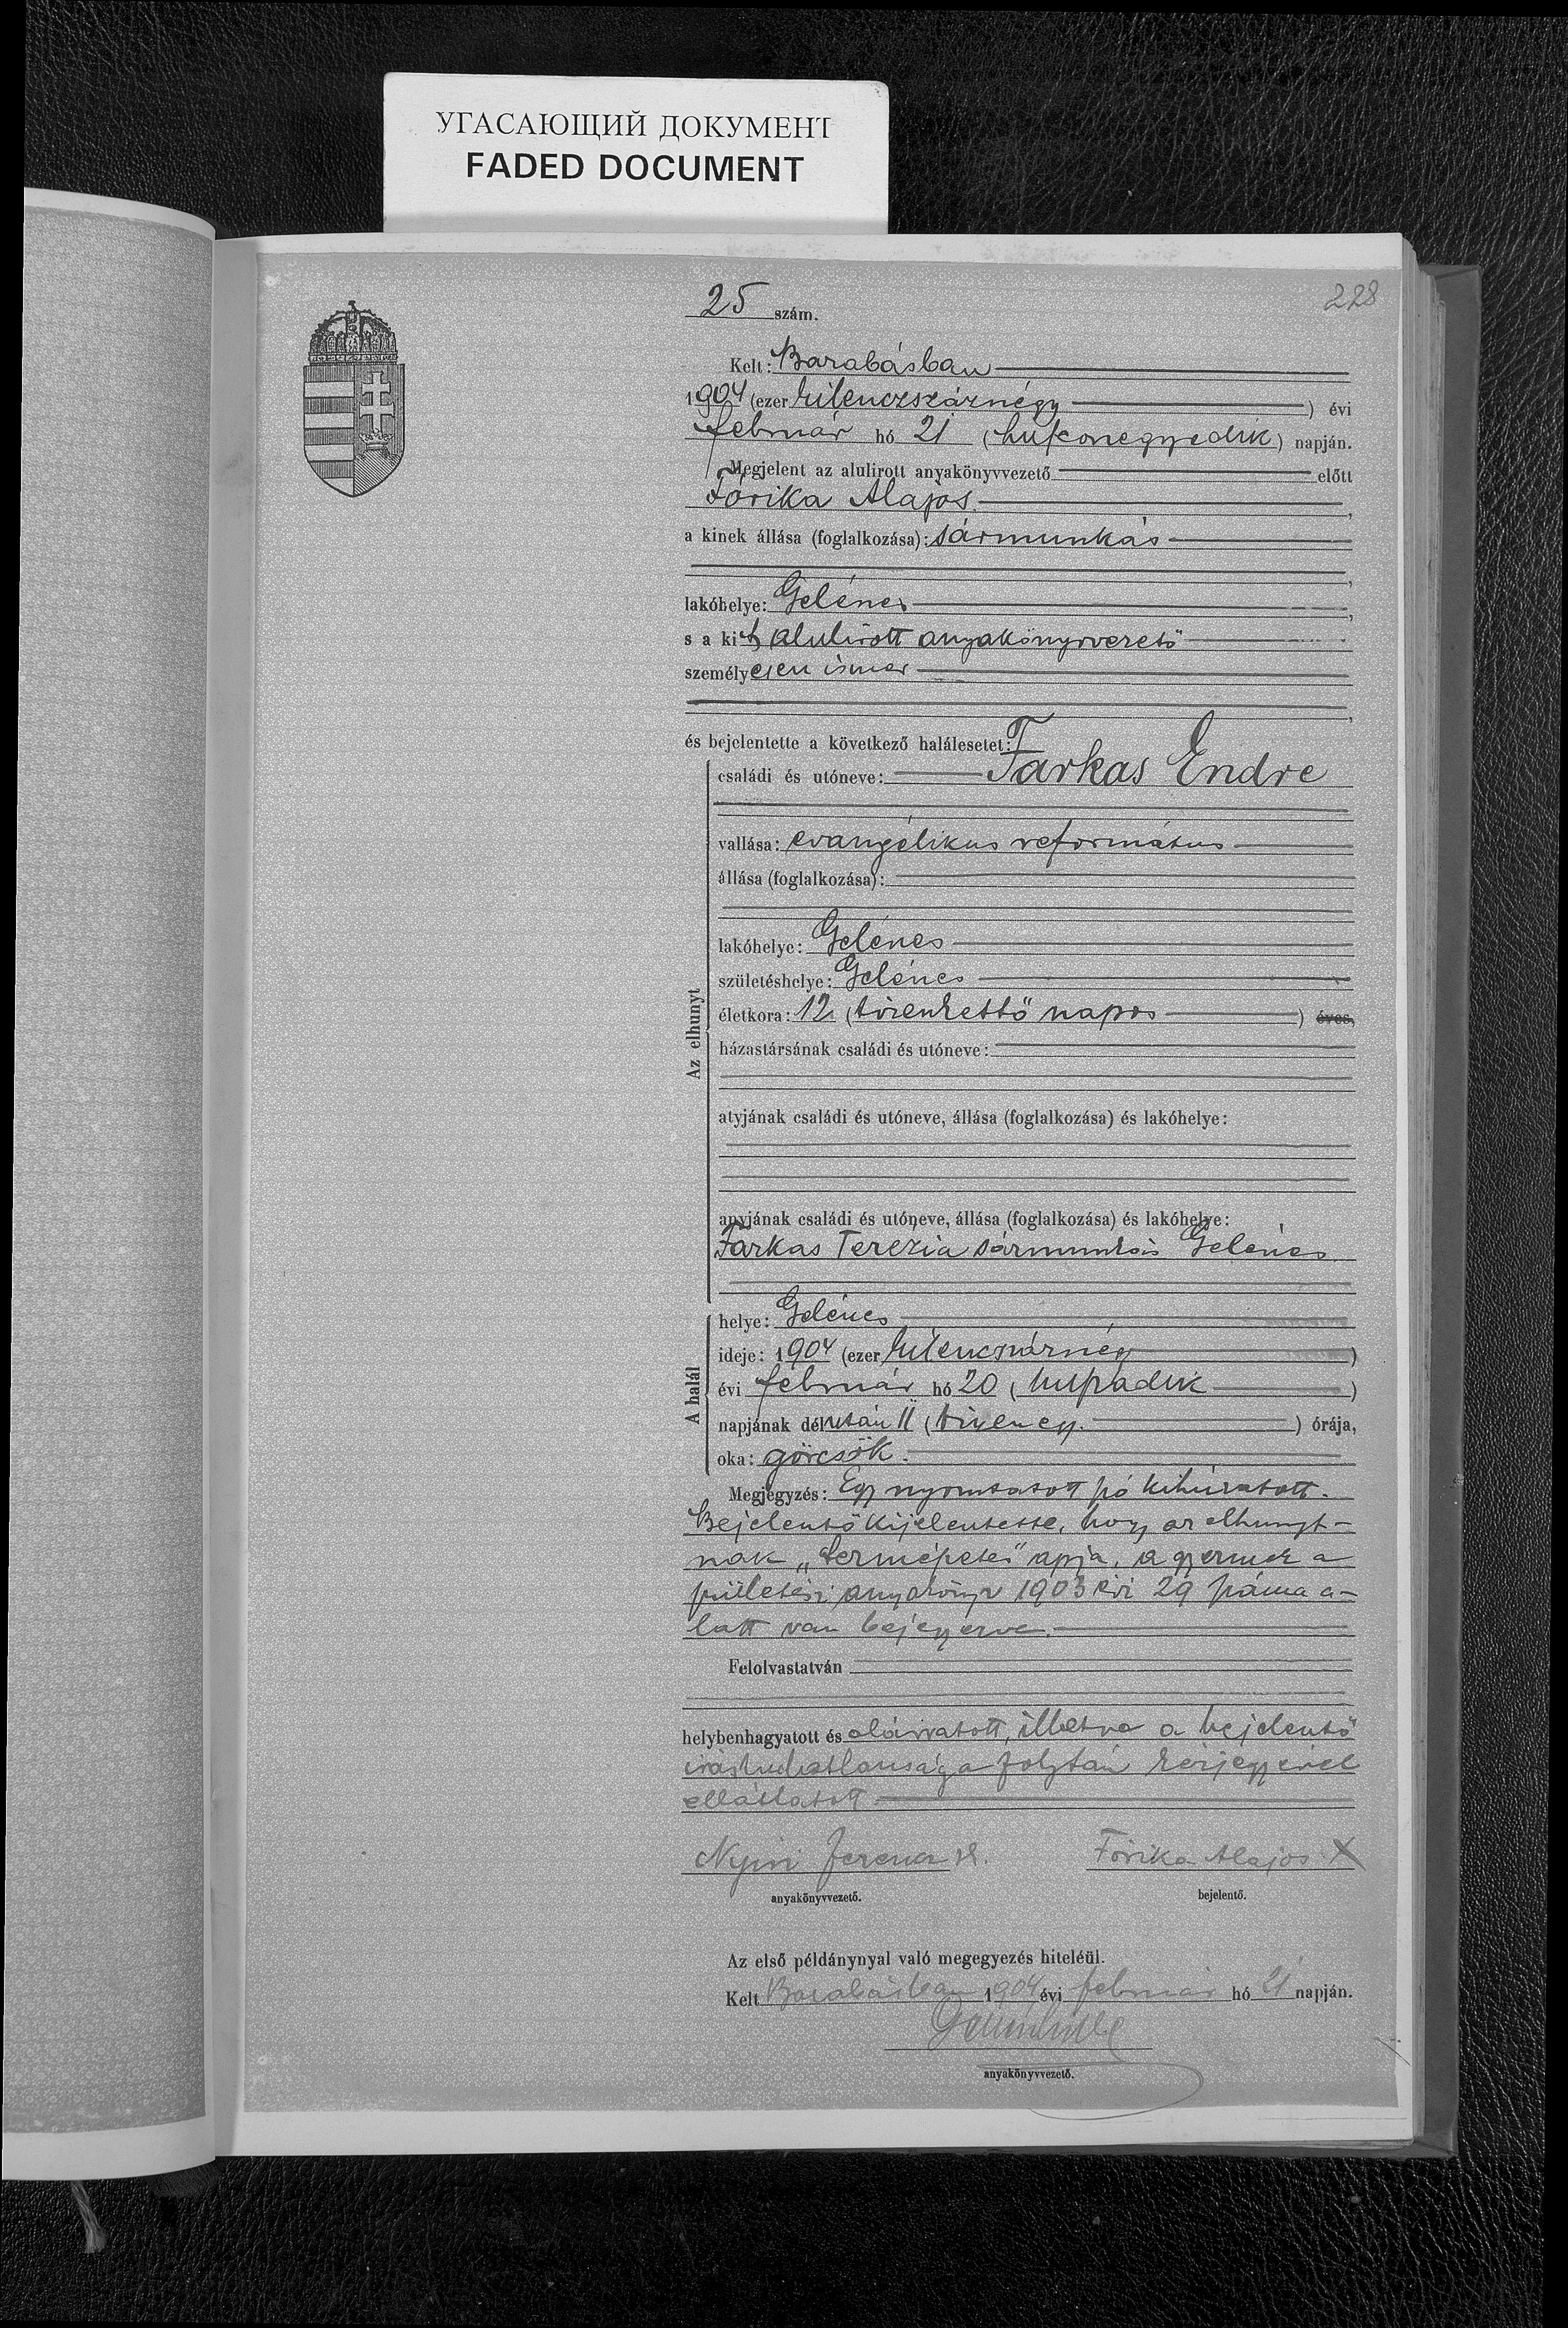 УГАСАЮЩИЙ ДОКУМЕНТ
FADED DOCUMENT
228
25 szám.
Kelt: Barabásban
1904 (ezer kilenczszáznégy) évi
február hó 21 (huszonegyedik) napján.
Megjelent az alulirott anyakönyvvezető előtt
Fórika Alajos,
a kinek állása (foglalkozása): sármunkás
lakóhelye: Gelénes,
s a kit alulirott anyakönyvvezető
személyesen ismer
és bejelentette a következő halálesetet:
családi és utóneve: Farkas Endre
vallása: evangélikus református
állása (foglalkozása):
lakóhelye: Gelénes
születéshelye: Gelénes
Az elhunyt
életkora: 12 (tizenkettő napos) éves,
házastársának családi és utóneve:
atyjának családi és utóneve, állása (foglalkozása) és lakóhelye:
anyjának családi és utóneve, állása (foglalkozása) és lakóhelye:
Farkas Terézia sármunkás Gelénes
A halál
helye: Gelénes
ideje: 1904 (ezer kilencszáznégy)
évi február hó 20 (huszadik)
napjának délután 11 (tizenegy.) órája,
oka: görcsök.
Megjegyzés: Egy nyomtatott szó kihúzatott.
Bejelentő kijelentette, hogy az elhunyt-
nak „természetes" apja, a gyermek a
születési anyakönyv 1903 évi 29 száma a-
latt van bejegyezve.
Felolvastatván
helybenhagyatott és aláiratott, illetve a bejelentő
irástudatlansága folytán kézjegyével
elláttatott
Nyiri Ferencz
Fórika Alajos X
anyakönyvvezető.
bejelentő.
Az első példánynyal való megegyezés hiteléül.
Kelt Barabásban 1904 évi február hó 21 napján.
anyakönyvvezető.